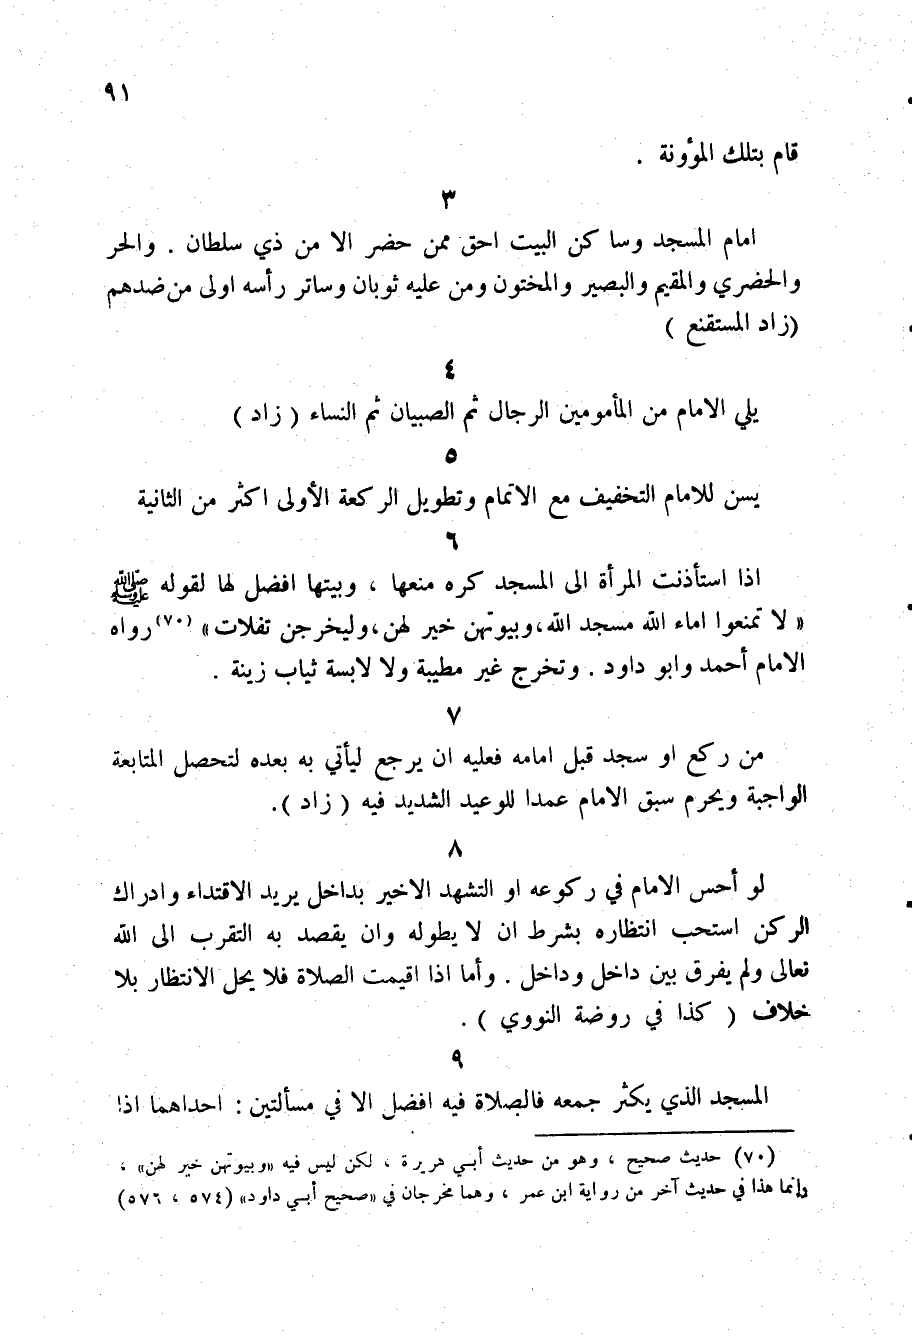 ٩١
قام بتلك المؤونة .
٣
امام المسجد وساكن البيت احق ممن حضر الا من ذي سلطان . والحر
والحضري والمقيم والبصير والمختون ومن عليه ثوبان وساتر رأسه اولى من ضدهم
(زاد المستقنع )
٤
يلي الامام من المأمومين الرجال ثم الصبيان ثم النساء ( زاد )
٥
يسن للامام التخفيف مع الاتمام وتطويل الركعة الأولى اكثر من الثانية
٦
اذا استأذنت المرأة الى المسجد كره منعها ، وبيتها افضل لها لقوله ﷺ
« لا تمنعوا اماء الله مسجد الله،وبيوتهن خير لهن،وليخرجن تفلات» (٧٠)رواه
الامام أحمد وابو داود . وتخرج غير مطيبة ولا لابسة ثياب زينة .
٧
من ركع او سجد قبل امامه فعليه ان يرجع ليأتي به بعده لتحصل المتابعة
الواجبة ويحرم سبق الامام عمدا للوعيد الشديد فيه ( زاد ).
٨
لو أحس الامام في ركوعه او التشهد الاخير بداخل يريد الاقتداء وادراك
الركن استحب انتظاره بشرط ان لا يطوله وان يقصد به التقرب الى الله
تعالى ولم يفرق بين داخل وداخل . وأما اذا اقيمت الصلاة فلا يحل الانتظار بلا
خلاف ( كذا في روضة النووي ) .
٩
المسجد الذي يكثر جمعه فالصلاة فيه افضل الا في مسألتين : احداهما اذا
(٧٠) حديث صحيح ، وهو من حديث أبي هريرة ، لكن ليس فيه «وبيوتهن خير لهن» ،
وإنما هذا في حديث آخر من رواية ابن عمر ، وهما مخرجان في «صحيح أبي داود» (٥٧٤ ، ٥٧٦)